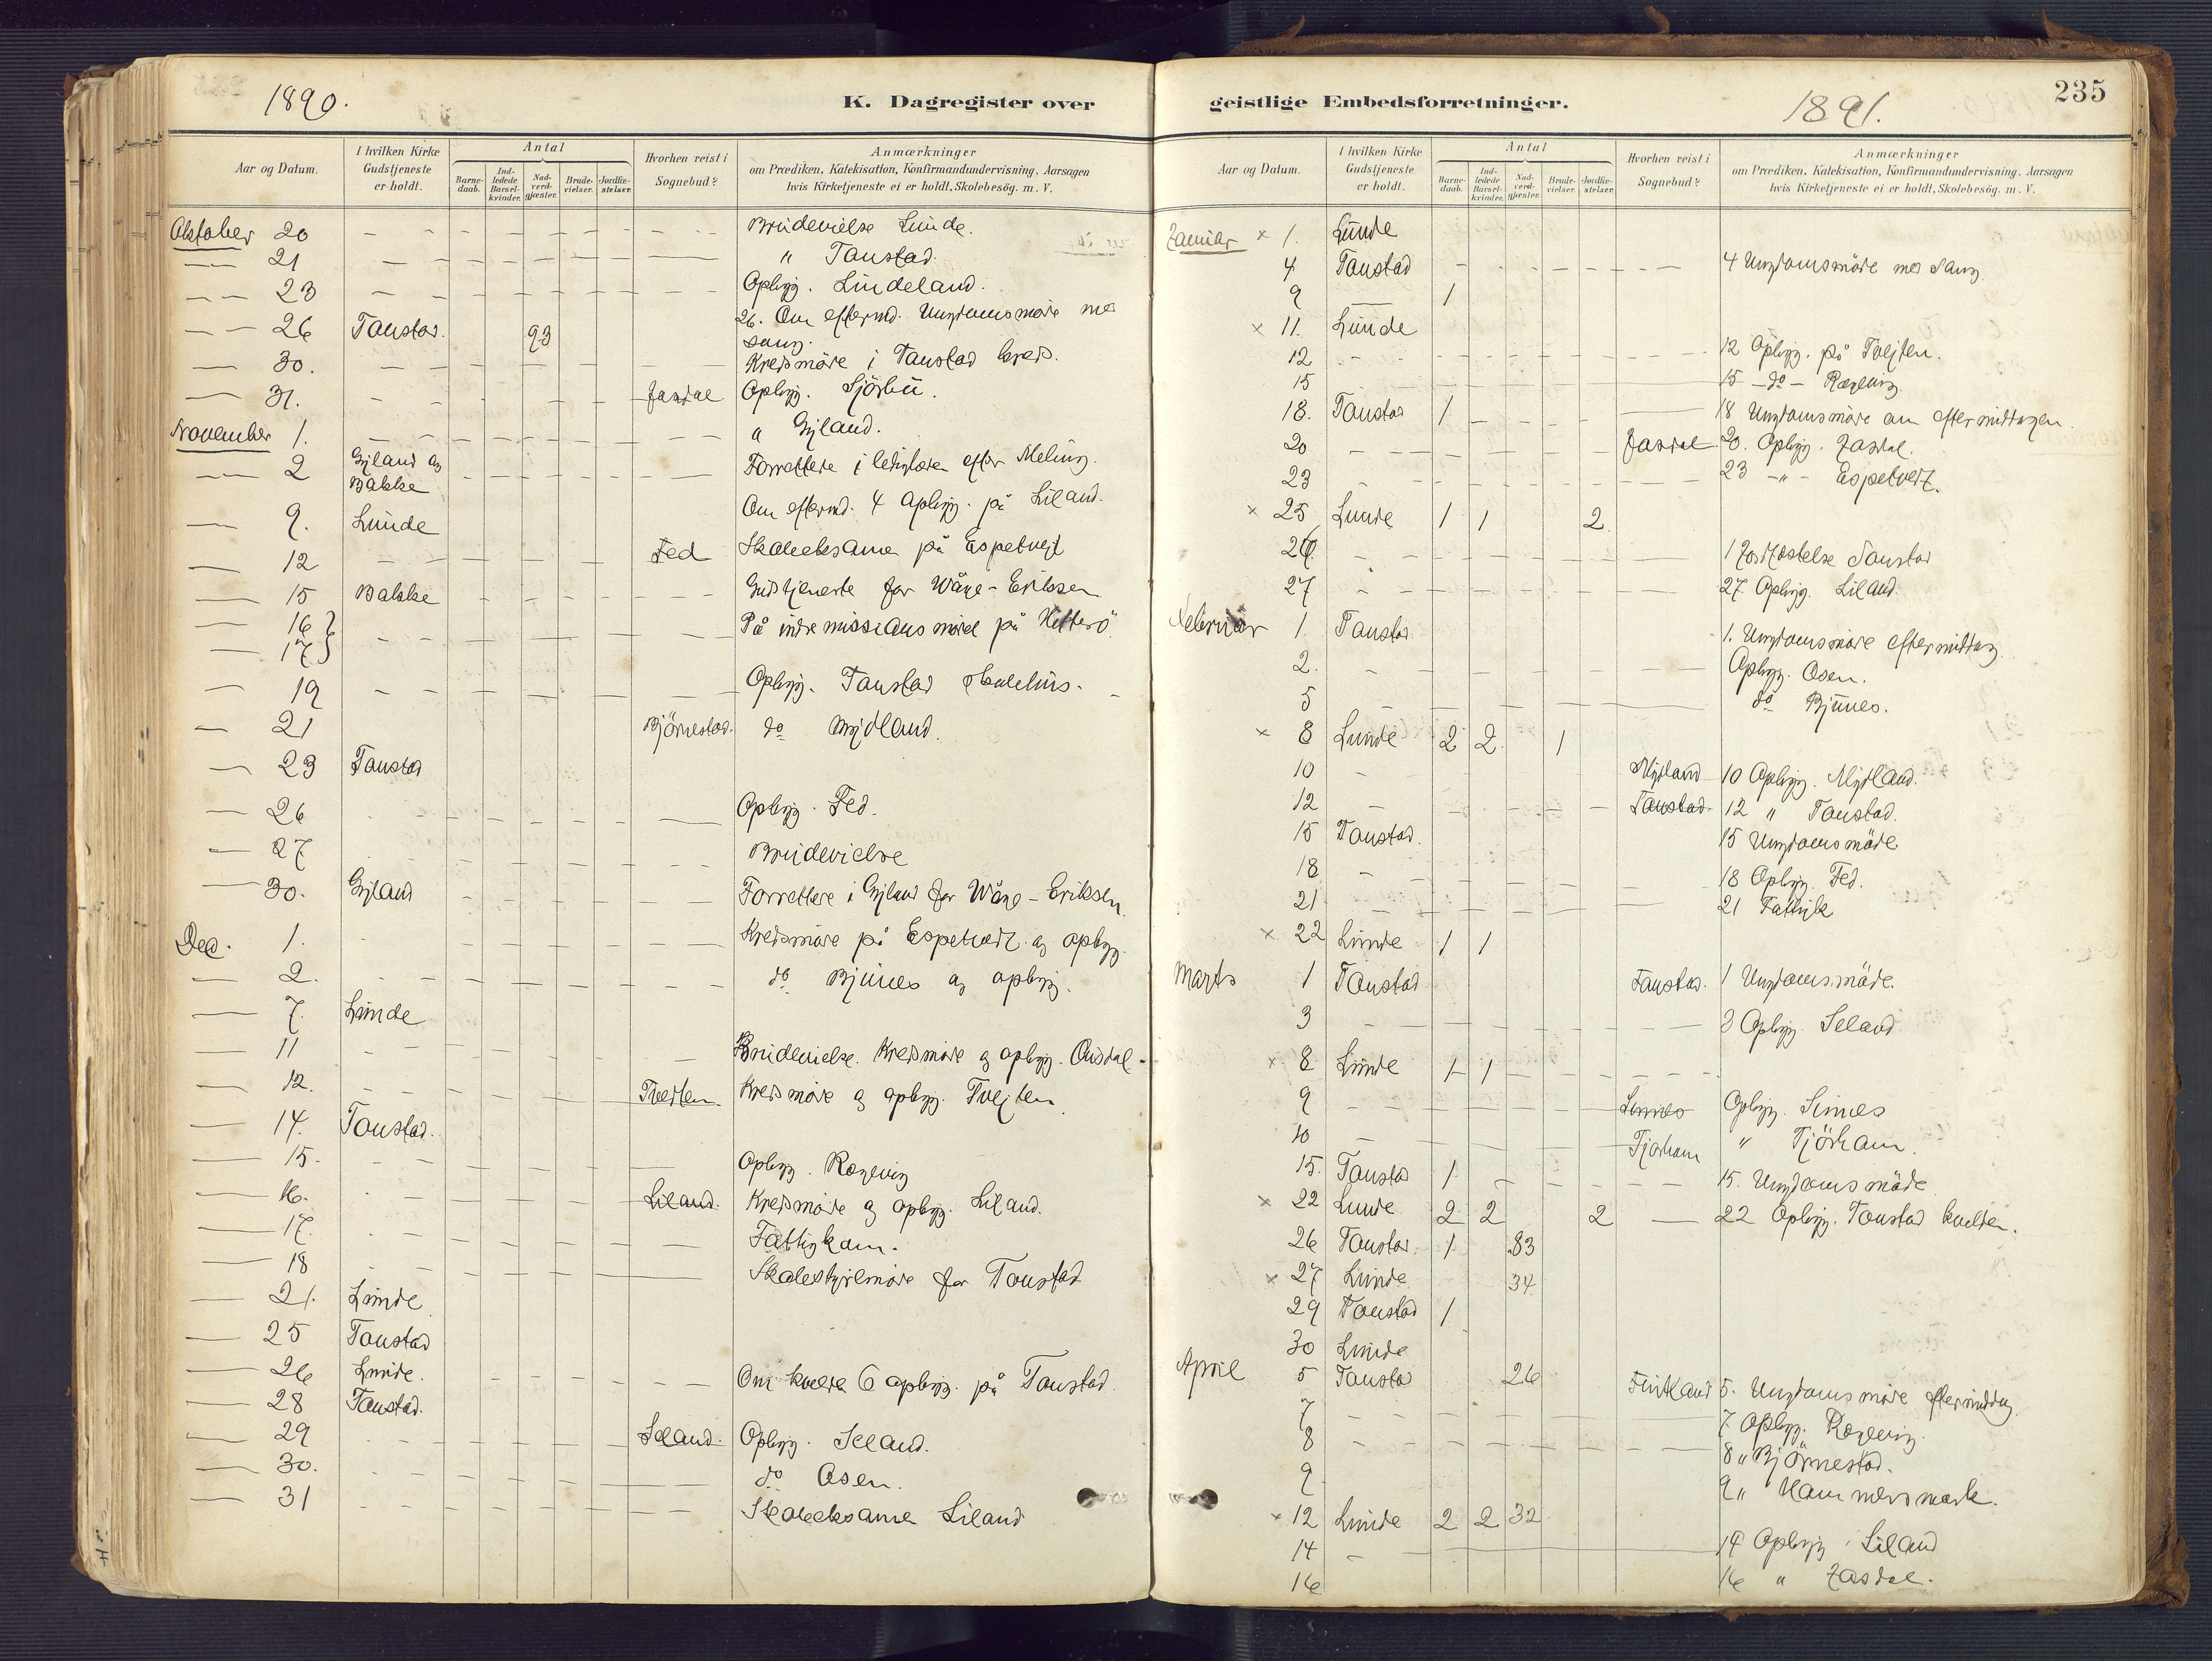 1890.
K. Dagregister over
Aar og Datum.
I hvilken Kirke Gudstjeneste er holdt.
Antal
Barne-daab.
Ind-ledede Barsel-kvinder.
Nad-verd-gjæster.
Brude-vielser.
Jordfæ-stelser.
Hvorhen reist i Sognebud?
Anmærkninger
om Prædiken, Katekisation, Konfirmandundervisning, Aarsagen
hvis Kirketjeneste ei er holdt, Skolebesög. m. V.
Oktober 20 Brudevielse Lunde.
21 " Tonstad
23 Opbygg. Lindeland.
26 Tonstad. 93 26. Om eftermd. Ungdomsmöde med
sang.
30. Kredsmöde i Tonstad kreds.
31. Josdal Opbygg. Sjörbu.
November 1. " Gyland.
2 Gyland og Bakke Forrettede i ledigheden efter Meling.
9. Lunde Om eftermd. 4 opbygg. på Liland.
12 Fed Skoleeksamen på Espetvejt
15 Bakke Gudstjeneste for Wåge-Eriksen
16 } På indremissionsmödet på Hitterö.
17 }
19 Opbygg. Tonstad skolehus.
21 Björnestad. do Mydland.
23 Tonstad
26 Opbygg. Fed.
27 Brudevielse
30. Gyland Forrettede i Gyland for Wåge-Eriksen.
Dec. 1. Kredsmöde på Espetvedt og opbygg.
2. do Bjunes og opbygg.
7. Lunde
11 Brudevielse. Kredsmöde og opbygg. Ousdal
12. Tveiten. Kredsmöde og opbygg. Tvejten.
14. Tonstad.
15. Opbygg. Rægevig
16. Liland. Kredsmöde og opbygg. Liland.
17. Fattigkom.
18 Skolestyremöde for Tonstad
21. Lunde
25 Tonstad
26 Lunde. Om kvelden 6 opbygg. på Tonstad.
28 Tonstad.
29 Seland. Opbygg. Seland.
30. do Osen.
31 Skoleeksamen Liland
geistlige Embedsforretninger.
1891.
235
Aar og Datum.
I hvilken Kirke Gudstjeneste er holdt.
Antal
Barne-daab.
Ind-ledede Barsel-kvinder.
Nad-verd-gjæster.
Brude-vielser.
Jordfæ-stelser.
Hvorhen reist i Sognebud?
Anmærkninger
om Prædiken, Katekisation, Konfirmandundervisning, Aarsagen
hvis Kirketjeneste ei er holdt, Skolebesög. m. V.
Januar × 1. Lunde
4 Tonstad 4 Ungdomsmöde med Sang
9 — 1
× 11. Lunde
12 12 Opbygg. på Tvejten.
15 15 do Rægevig.
18. Tonstad 1 18 Ungdomsmöde om eftermiddagen.
20 Josdal 20. Opbygg. Josdal.
23 23 " Espetvedt.
× 25 Lunde 1 1 2
26. 1 Jordfæstelse Tonstad
27 27. Opbygg. Liland
Februar 1. Tonstad. 1. Ungdomsmöde eftermiddag.
2. Opbygg. Osen.
5 do Bjunes.
× 8 Lunde 2 2 1
10 Mydland 10 Opbygg. Mydland.
12 Tonstad. 12 " Tonstad.
15 Tonstad. 15 Ungdomsmöde
18 18 Opbygg. Fed.
21 21 Fattigk
× 22 Lunde 1 1
Marts 1 Tonstad Tonstad. 1 Ungdomsmöde.
3 3 Opbygg. Seland
× 8 Lunde 1 1
9 Sinnes Opbygg. Sinnes
10 Tjorhom " Tjörhom.
15. Tonstad 1 15. Ungdomsmöde
× 22 Lunde 2 2 2 22 Opbygg. Tonstad kvelden.
26 Tonstad. 1 83
× 27 Lunde 34
29 Tonstad 1
30 Lunde
April 5 Tonstad 26 Fintland 5. Ungdomsmöde eftermiddag.
7 7 Opbygg. Rægevig.
8 8 " Björnestad.
9 9 " Hammersmark.
× 12 Lunde 2 2 32
14 14 Opbygg. Liland
16 16 " Josdal.